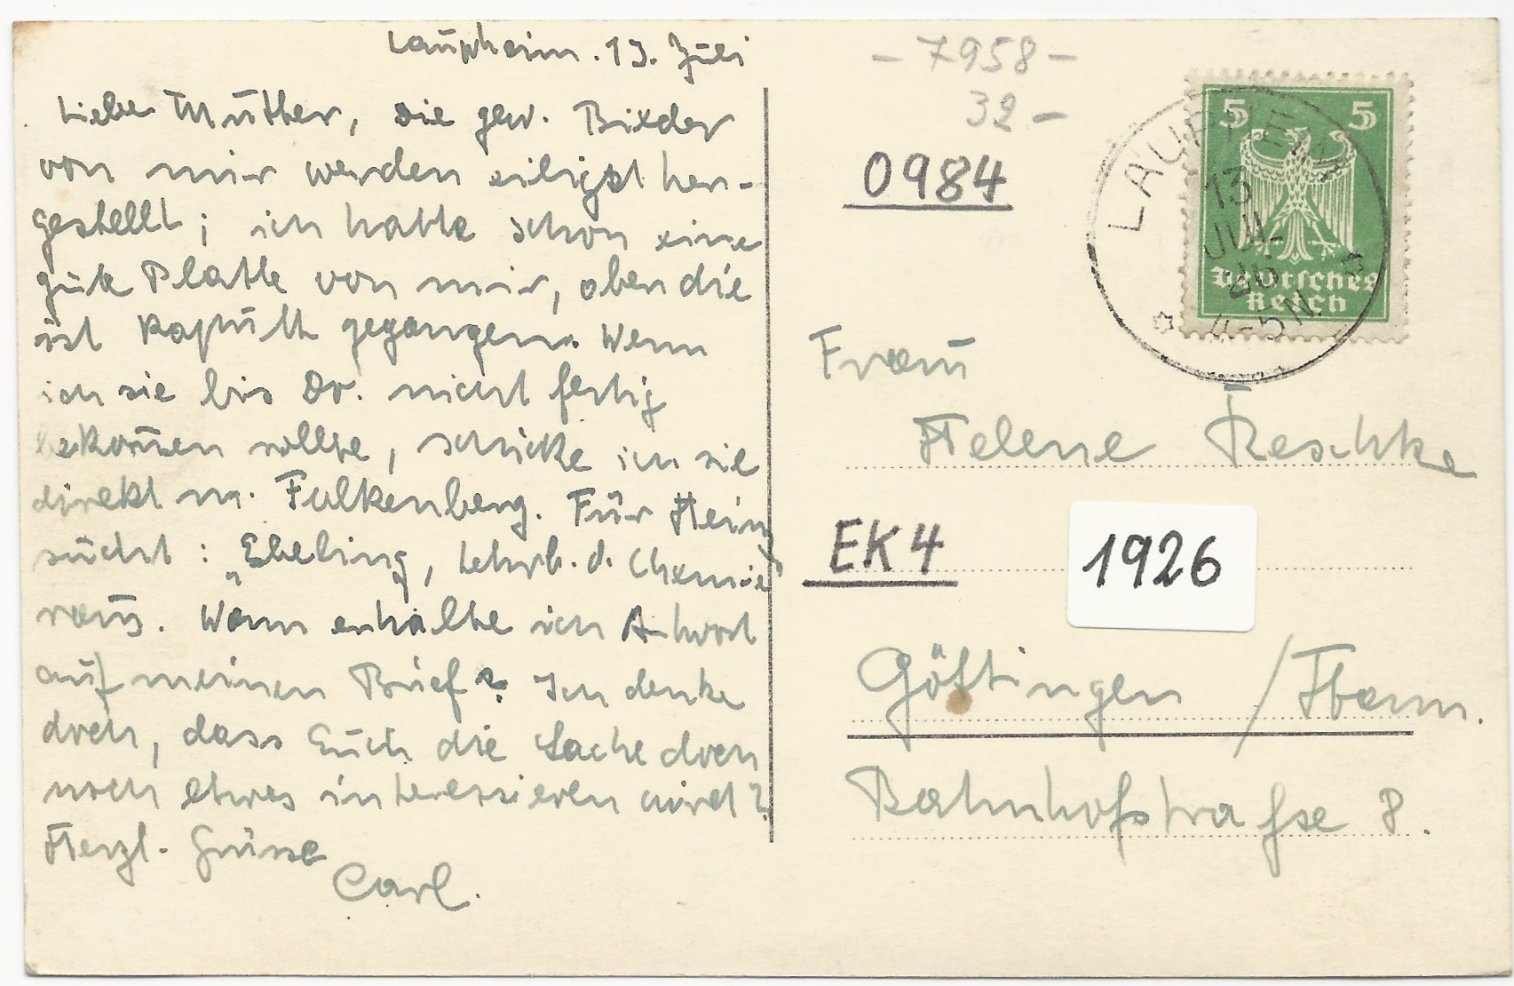 Laupheim. 13. Juli
Liebe Mutter, die gew. Bilder
von mir werden eiligst her-
gestellt; ich hatte schon eine
gute Platte von mir, aber die
ist kaputt gegangen. Wenn
ich sie bis Do. nicht fertig
bekom̄en sollte, schicke ich sie
direkt n. Falkenberg. Für Hein
sucht: „Ebeling, Lehrb. d. Chemie"
raus. Wann erhalte ich Antwort
auf meinen Brief? Ich denke
doch, dass Euch die Sache doch
noch etwas interessieren wird?
Herzl. Grüsse
Carl.
- 7958 -
32 -
0984
5 5
Deutsches
Reich
LAUPHEIM
13
JUL
26
4-5N.
Frau
Helene Reschke
EK4
1926
Göttingen / Hann.
Bahnhofstraße 8.